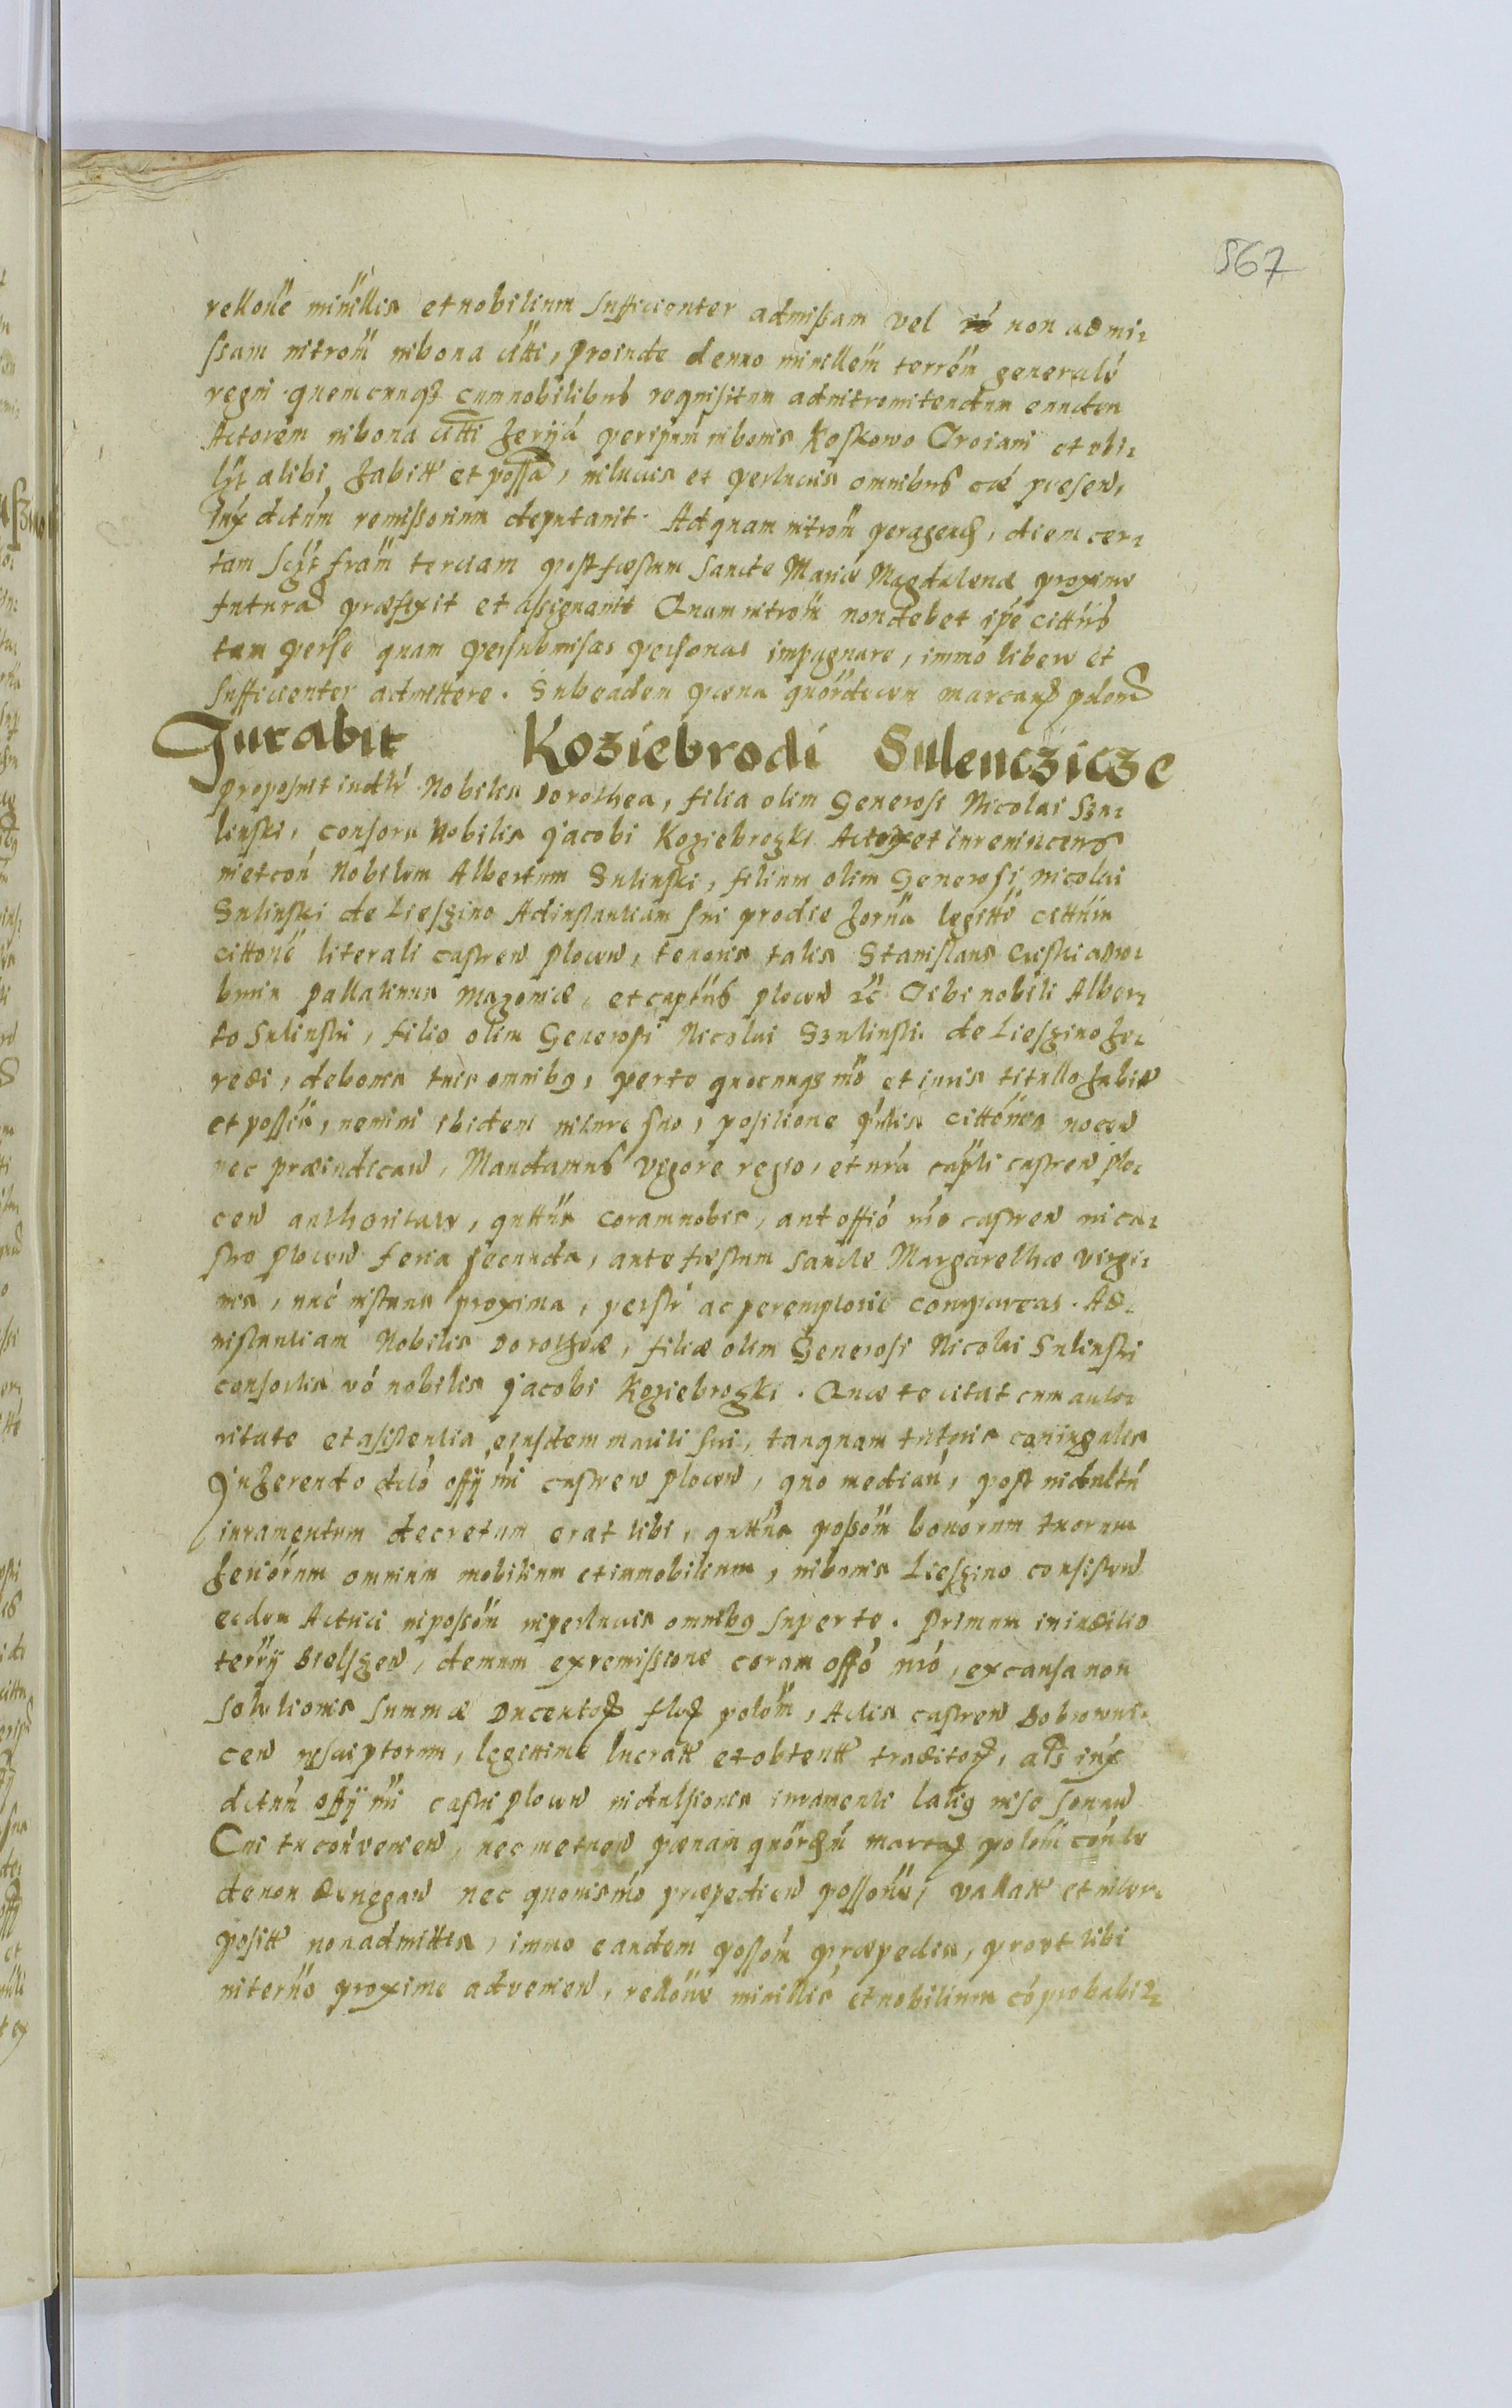 567
rellone minillis et nobilium sufficienter admissam vel non admi-
ssam introm in bona citti, proinde denuo minillem terrem generale
regni quemcunqz cum nobilibus requisitum ad intromitendum eundem
Actorem in bona citti herria per ipum in bonis Koskowo Troiani et ubi-
lzt alibi habitt et possa, in lucris et per lucris omnibus cae presen,
Jux dictum remissorium deputavit. Ad quam introm peragend, diem cer-
tam sczt fram terciam post festum Sancte Mariae Magdalenae proxime
futura praefixit et assignavit Quam introm non debet ipe cittus
tam per se quam per submissas personas impugnare, immo libere et
sufficienter admittere. Sub eadem poena quordecem marcarz polon
Jurabit Koziebrodi Sulenczicze
Proposuit indti Nobilis Dorothea, filia olim Generosi Nicolai Szu-
linski, consors Nobilis Jacobi Koziebrozki Actrix et in rem iacens
met con Nobilem Albertum Sulinski, filium olim Generosi Nicolai
Sulinski de Lieszino Ad instantiam sui pro die horna legitte cittum
cittone literali castren plocen, tenoris talis Stanislaus Criski a dro-
bnin Pallatinus Mazoviae, et captus plocen zc Tibi nobili Alber-
to Sulinski, filio olim Generosi Nicolai Szulinski de Lieszino he-
redi, de bonis tuis omnibq, per te quocunqs mo et iuris titullo habitt
et possis, nemini ibidem in iure suo, positione pntis cittonis nocen
nec praeiudican, Mandamus vigore regio, et nra capli castren plo-
cen authoritate, quttus coram nobis, aut offio nro castren in ca-
stro plocen feria secunda, ante festum Sancte Margarethae virgi-
nis, nuc instans proxima, perstr ac peremptorie compareas. Ad
instantiam Nobilis Dorotheae, filiae olim Generosi Nicolai Sulinski
consortis vo nobilis Jacobi Koziebrozki. Quae te citat cum autho-
ritate et assistentia eiusdem mariti sui, tanquam tutoris coniugalis
Inherendo dcto offij nri castren plocen, quo median, post indultu
iuramentum decretum erat tibi, quttus possom bonorum tuorum
heriorum omnium mobilium et immobilium, in bonis Lieszino consisten
eidem Actrici in possom in perlucris omnibq super te. Primum in iudicio
terrij Bielszen, demum ex remissione coram offo nro, ex causa non
solutionis summae Ducentorz florz polom, Actis castren Bobrowni-
cen inscriptorum, legittime lucratt et obtentt traditorz, als iux
dctum offij nri castri plocen indulsionis iuramenti latiq in se sonan
Cui tu convenien, nec metuen poenam quordem martarz polom conte
de non denegan nec quovismo praepedien possone, vallatt et inter-
positt non admittis, immo eandem possom praepedis, prout tibi
in terno proxime advenien, rellone minillis et nobilium coprobabir-